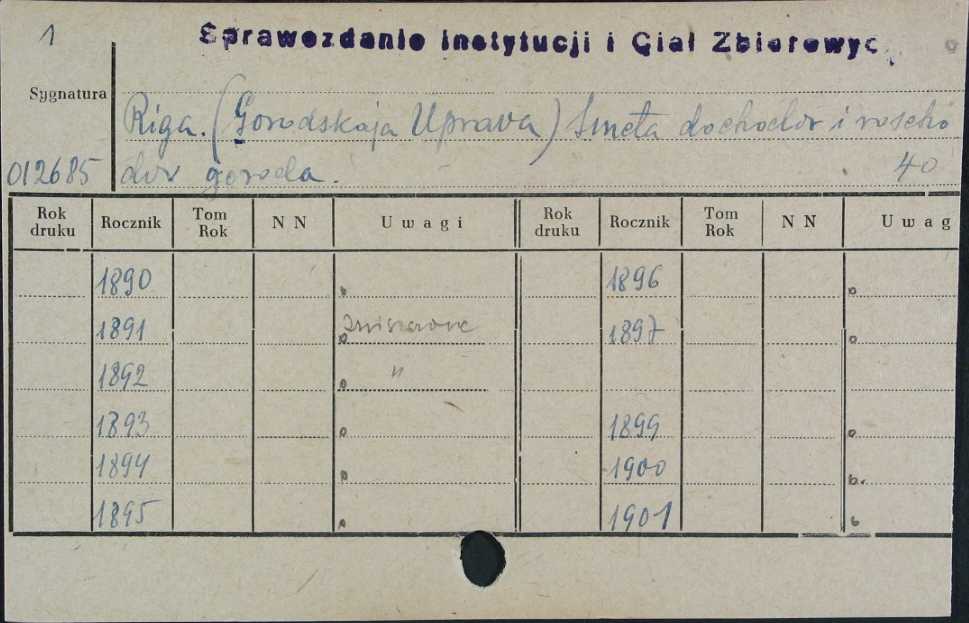 1
Sprawozdanie Instytucji i Ciał Zbiorowyc
Sygnatura
Riga. (Gorodskaja Uprava) Smeta dochodov i roscho
012685 dov goroda. 40
Rok druku Rocznik Tom Rok N N Uwagi Rok druku Rocznik Tom Rok N N Uwag
1890 1896
1891 Zniszczone 1897
1892 "
1893 1899
1894 1900 b.
1895 1901 b